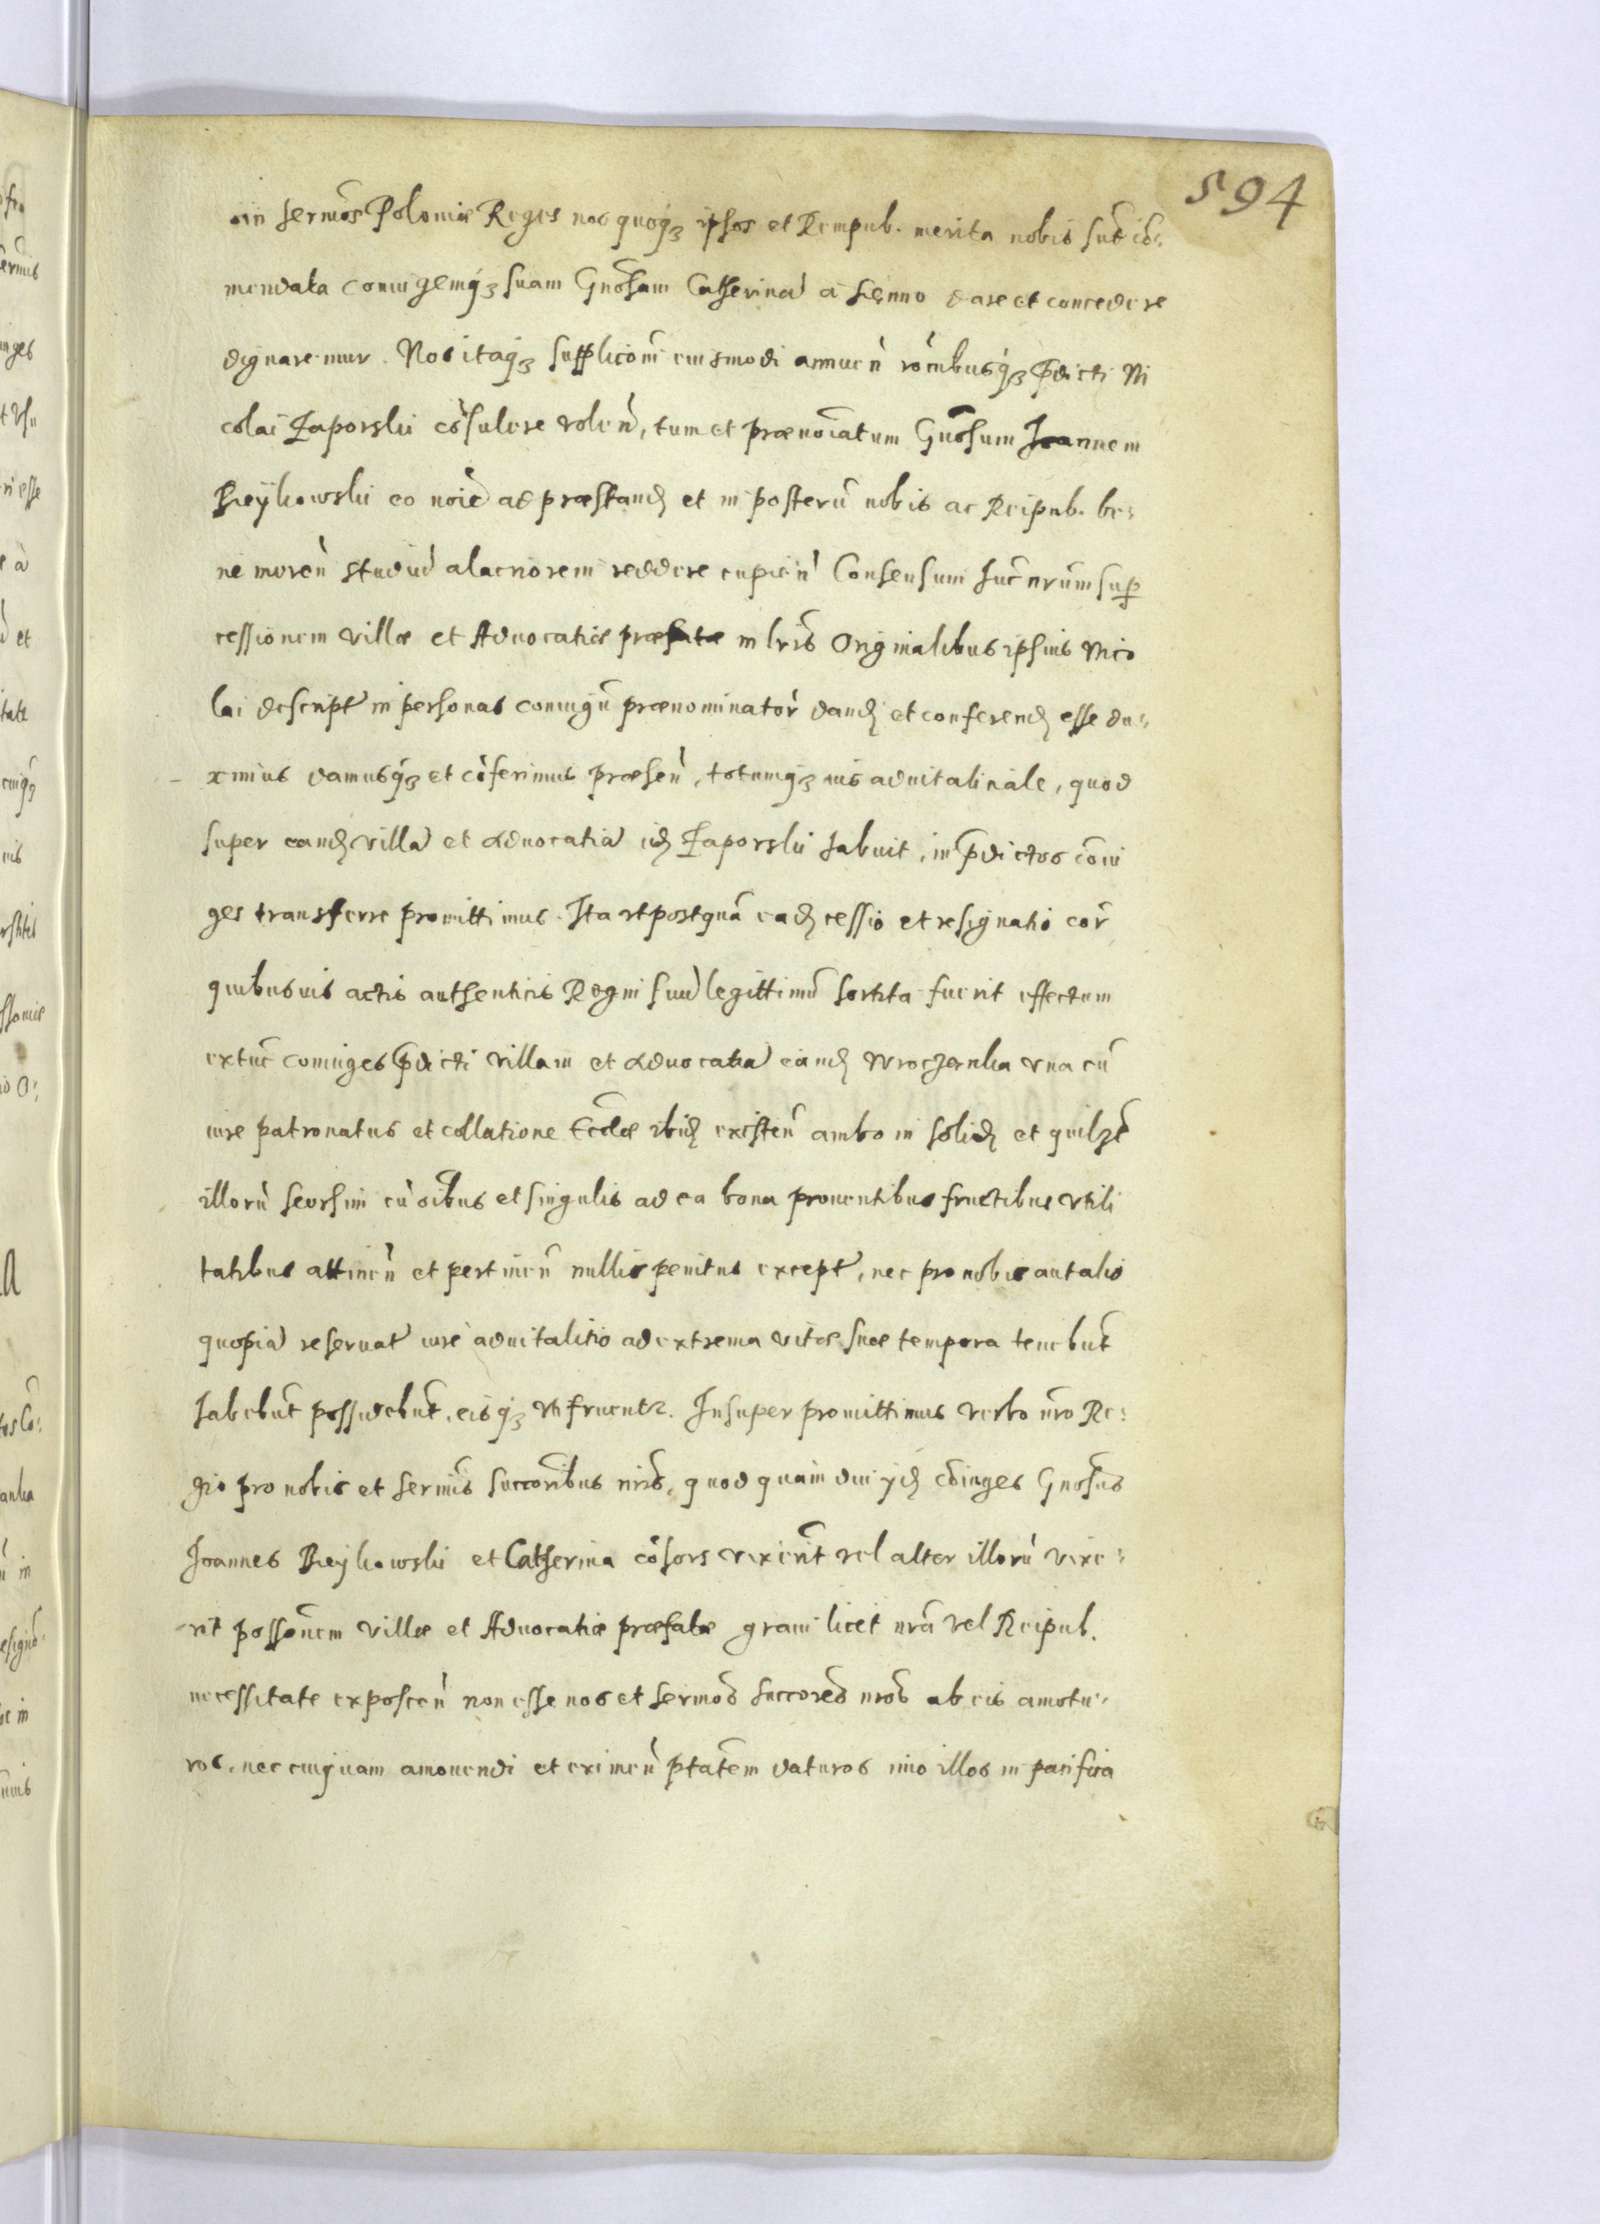 594
in sermos Poloniæ Reges nos quoqȝ ipsos et Rempub. merita nobis sut cõ:
mendata coniugemqȝ suam Gnosam Catherinã à Sienno dare et concedere
dignaremur. Nos itaqȝ supplicõni eiusmodi annueñ rõnibusqȝ p̃dicti Ni
colai Łaporski cõsulere voleñ, tum et prænoiatum Gnosum Joannem
Reÿkowski eo noiẽ ad præstanḍ et in posterũ nobis ac Reipub. be:
ne mereñ studiũ alacriorem reddere cupieñ Consensum huc nrũm suꝑ
cessionem villæ et Aduocatiæ præfatæ in lrĩs Originalibus ipsius Nico
lai descript in personas coniugũ prænominatoȓ danḍ et conferenḍ esse du:
ximus damusqȝ et cõferimus præseñ, totumqȝ ius aduitalitiale, quod
super eanḍ villã et aduocatiã iḍ Łaporski habuit, in p̃dictos coni
ges transferre promittimus. Ita vt postquã eaḍ cessio et resignatio coȓ
quibusuis actis authenticis Regni suũ legittimũ sortita fuerit effectum
extũc coniuges p̃dicti villam et aduocatiã eanḍ Wroczenka vna cũ
iure patronatus et collatione Eccl̃æ ibiḍ existeñ ambo in soliḍ et quilȝt
illorũ seorsim cũ oĩbus et singulis ad ea bona prouentibus fructibus vtili
tatibus attineñ et pertineñ nullis penitus except, nec pro nobis aut alio
quopiã reseruat iure aduitalitio ad extrema vitæ suæ tempora tenebũt
habebũt possidebũt, eisqȝ vti fruentr. Insuper promittimus verbo nr̃o Re:
gio pro nobis et sermis succoribus nr̃is, quod quam diu yḍ cõiuges Gnosus
Joannes Reÿkowski et Catherina cõsors vixerĩt vel alter illorũ vixe:
rit possõnem villæ et Aduocatiæ præfatæ graui licet nr̃a vel Reipub.
necessitate exposceñ non esse nos et sermos succores nr̃os ab eis amotu:
ros, nec cuiquam amouendi et eximeñ ptatem daturos imo illos in pacifica